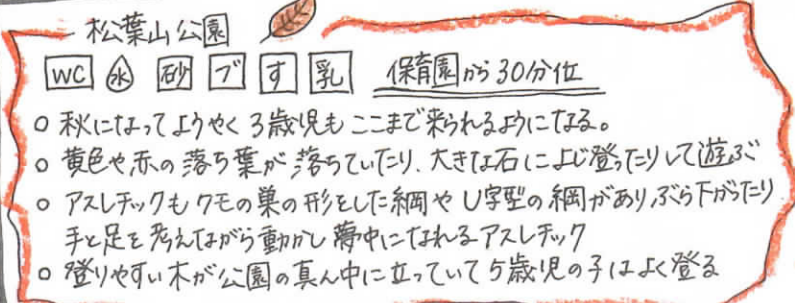 松葉山公園
WC 水 砂 ブ す 乳 保育園から30分位
○ 秋になってようやく3歳児もここまで来られるようになる。
○ 黄色や赤の落ち葉が落ちていたり、大きな石によじ登ったりして遊ぶ
○ アスレチックもクモの巣の形をした綱やU字型の綱があり、ぶら下がったり
手と足を考えながら動かし夢中になれるアスレチック
○ 登りやすい木が公園の真ん中に立っていて5歳児の子はよく登る